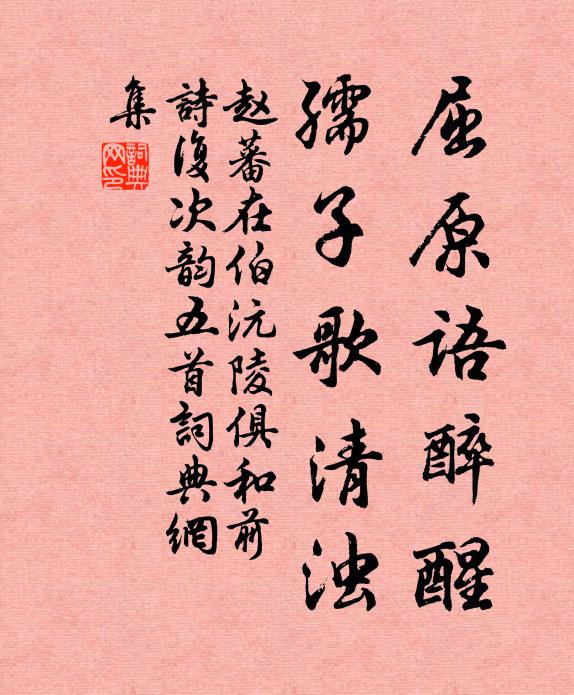 屈原语醉醒
孺子歌清浊
赵蕃在伯沅陵俱和前
詩復次韵五首詞典網
集
詞典網印